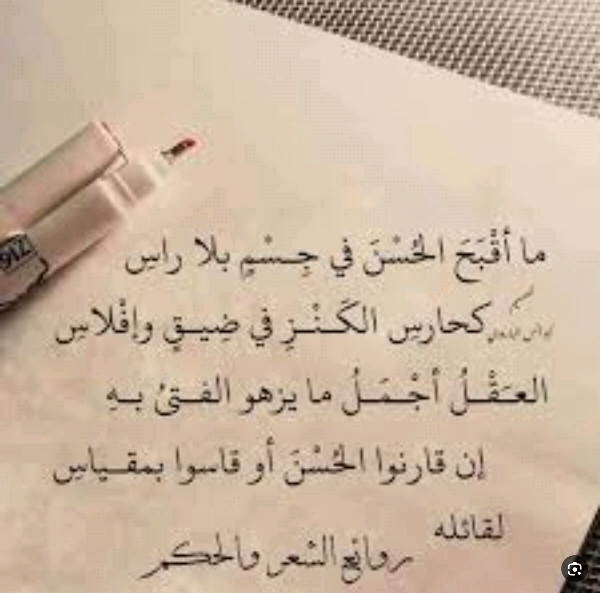 ما أقْبَحَ الحُسْنَ في جِسْمٍ بلا راسِ
كحارسِ الكَنْزِ في ضِيقٍ وإفْلاسِ
العَقْلُ أجْمَلُ ما يزهو الفتىٰ بهِ
إن قارنوا الحُسْنَ أو قاسوا بمقياسِ
لقائله
روائع الشعر والحكم